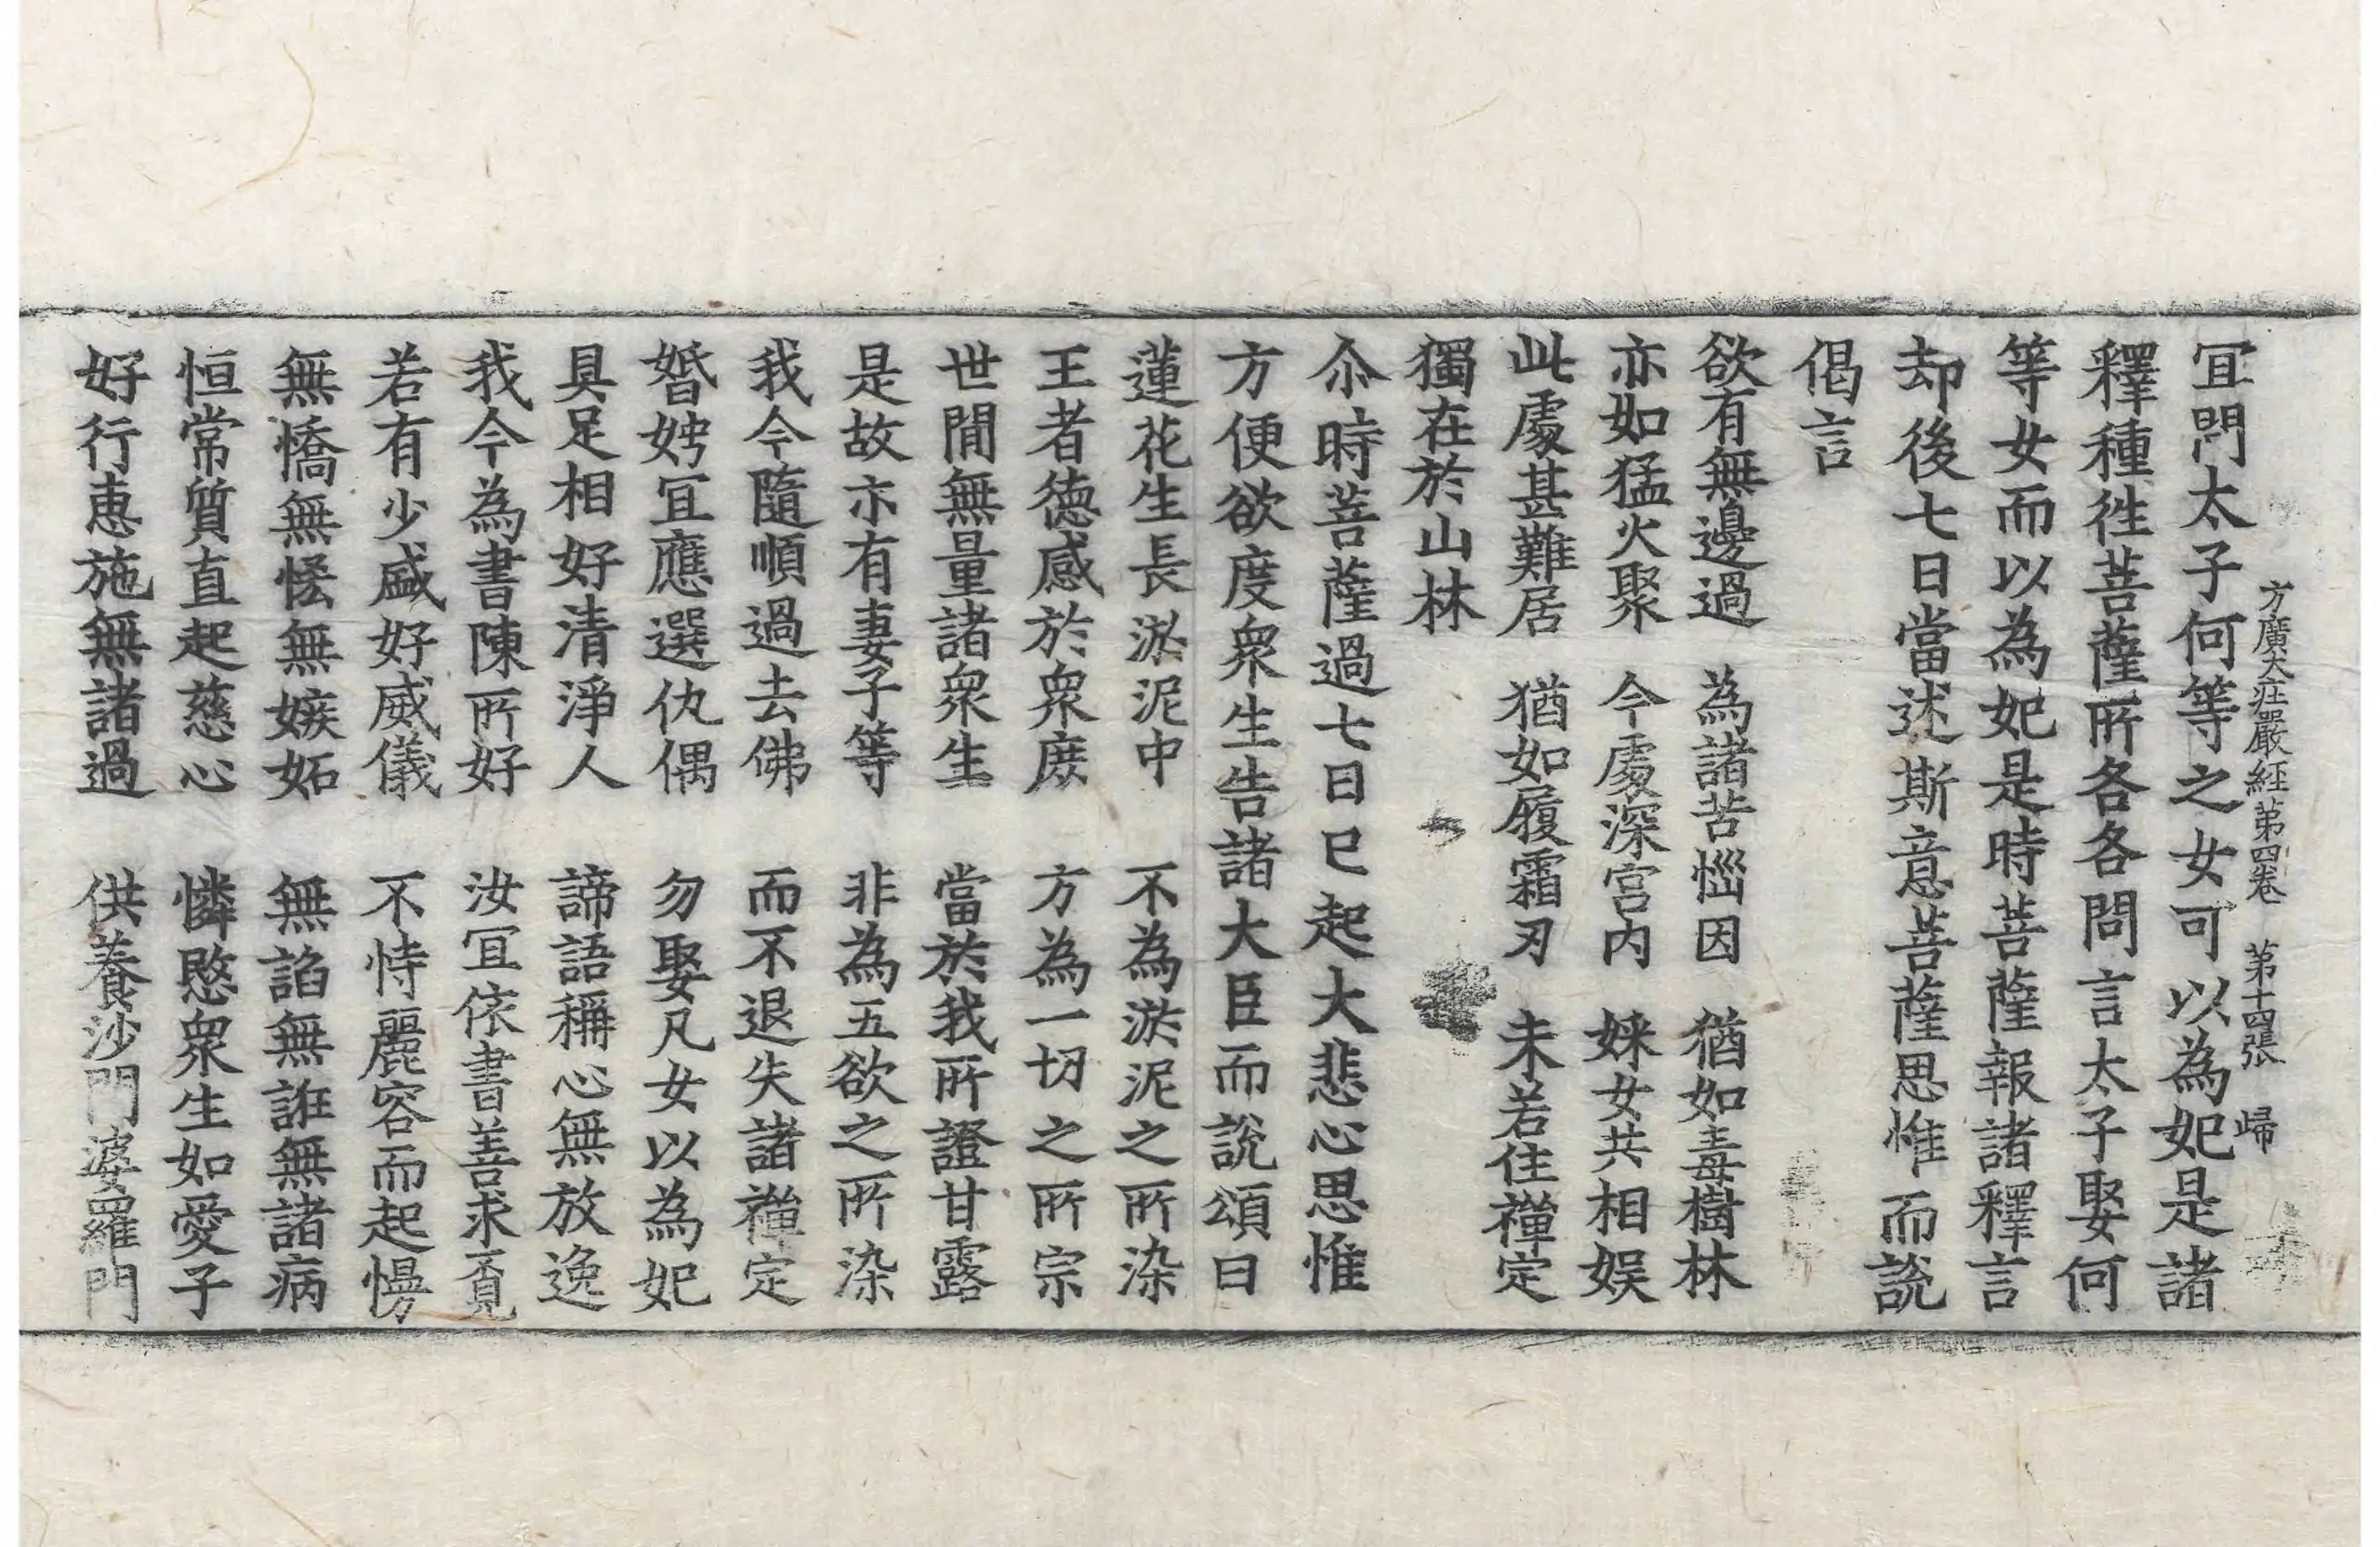 方廣大莊嚴經第四卷　第十四張　歸
冝問太子何等之女可以為妃是諸
釋種徃菩薩所各各問言太子娶何
等女而以為妃是時菩薩報諸釋言
却後七日當述斯意菩薩思惟而說
偈言
欲有無邊過　為諸苦惱因　猶如毒樹林
亦如猛火聚　今處深宫内　婇女共相娱
此處甚難居　猶如履霜刃　未若住禪定
獨在於山林
尒時菩薩過七日已起大悲心思惟
方便欲度衆生告諸大臣而說頌曰
蓮花生長淤泥中　不為淤泥之所染
王者德感於衆庶　方為一切之所宗
世間無量諸衆生　當於我所證甘露
是故亦有妻子等　非為五欲之所染
我今隨順過去佛　而不退失諸禪定
婚娉冝應選仇偶　勿娶凡女以為妃
具足相好清淨人　諦語稱心無放逸
我今為書陳所好　汝冝依書善求覓
若有少盛好威儀　不恃麗容而起慢
無憍無恡無嫉妬　無諂無誑無諸病
恒常質直起慈心　憐愍衆生如愛子
好行惠施無諸過　供養沙門婆羅門